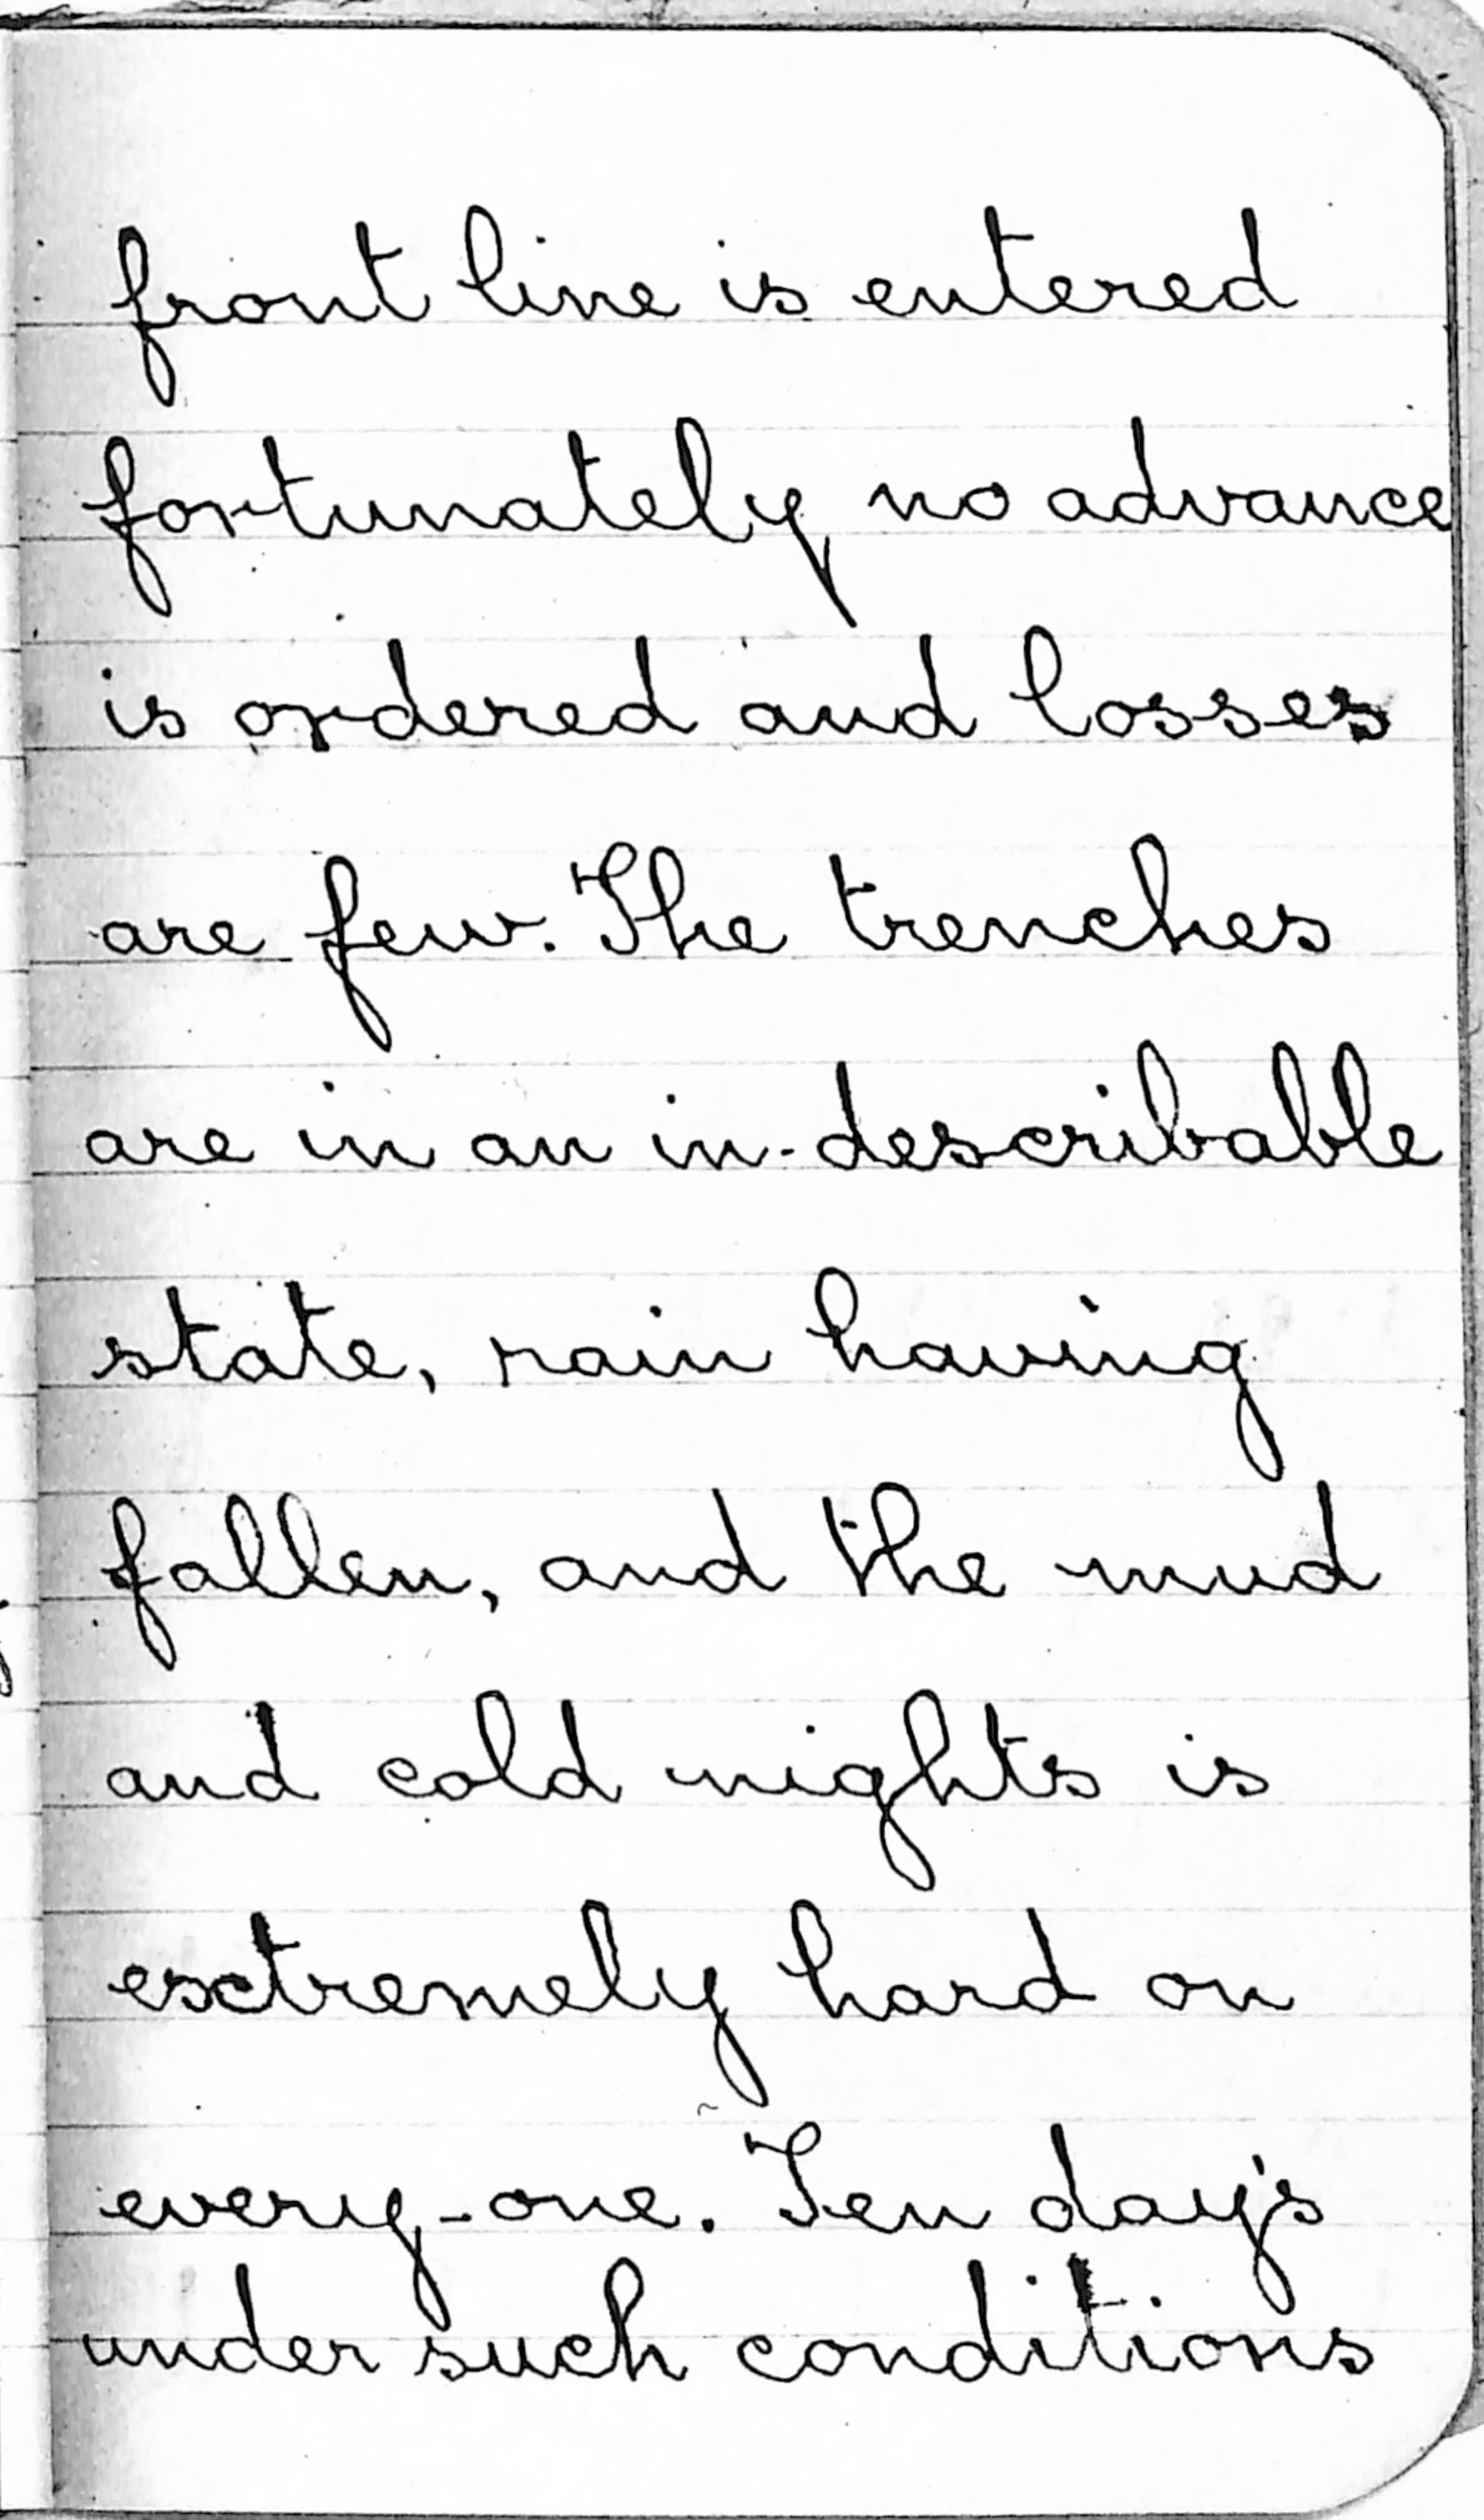 front line is entered
fortunately no advance
is ordered and losses
are few. The trenches
are in an in-describable
state, rain having
fallen, and the mud
and cold nights is
extremely hard on
every-one. Ten day's
under such conditions